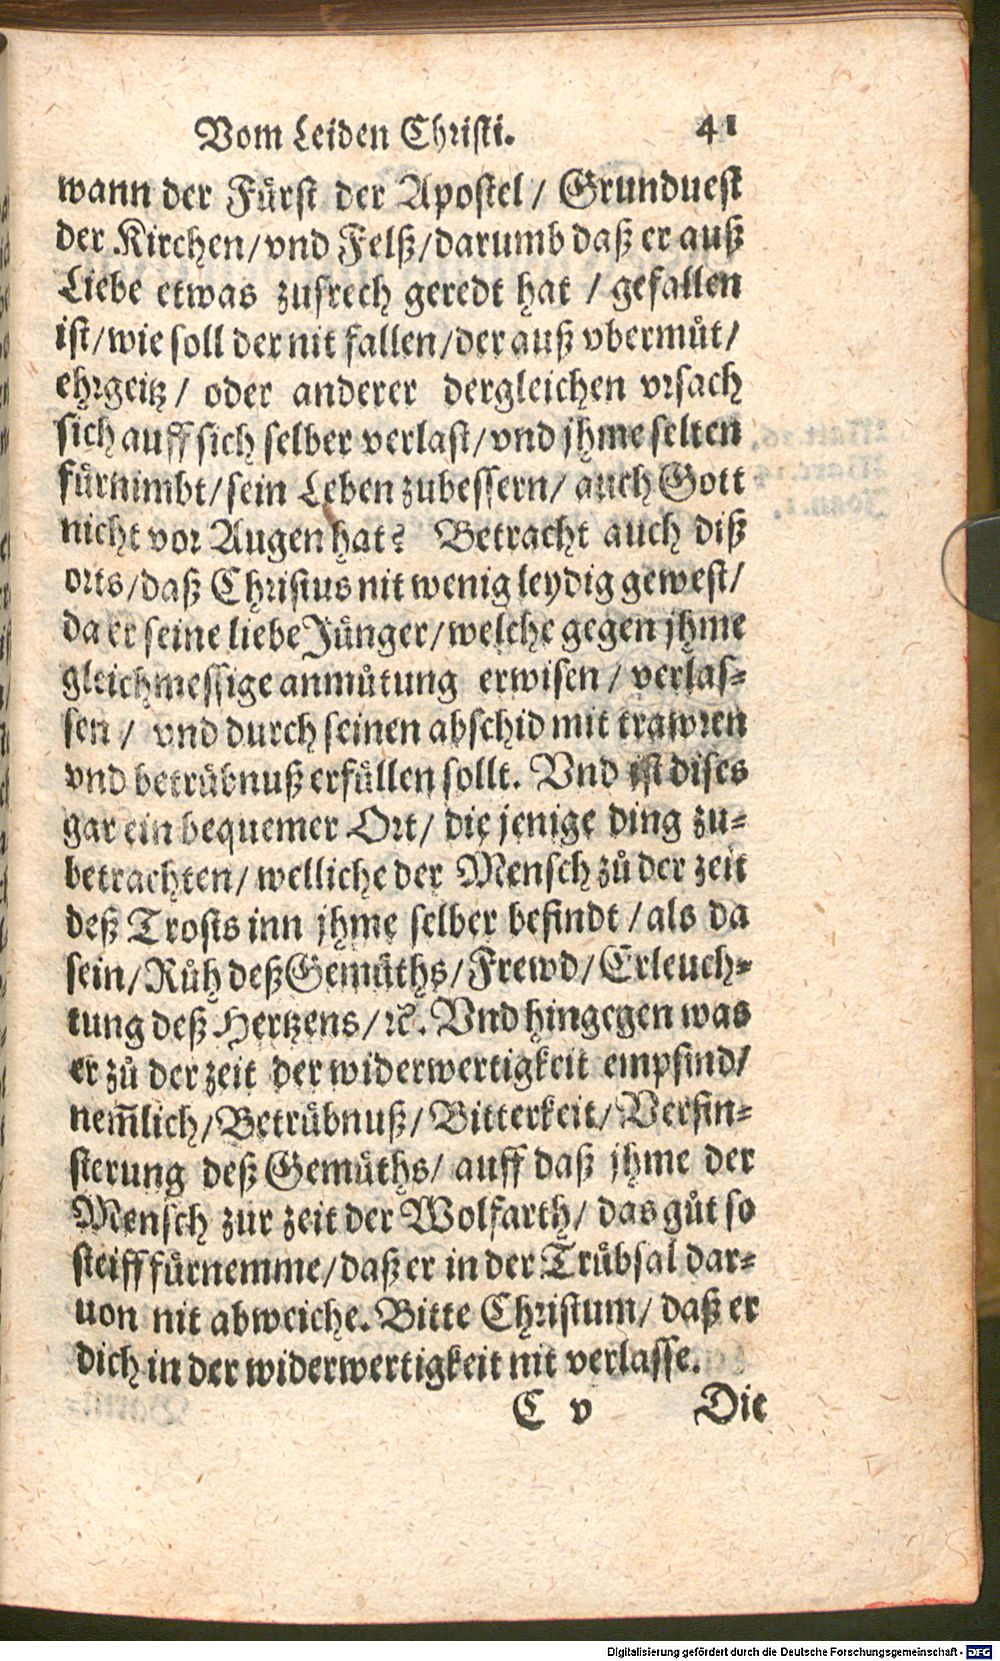 Vom Leiden Christi. 41
wann der Fürst der Apostel / Grunduest
der Kirchen/vnd Felß/darumb daß er auß
Liebe etwas zufrech geredt hat / gefallen
ist/wie soll der nit fallen/der auß vbermůt/
ehrgeitz/ oder anderer dergleichen vrsach
sich auff sich selber verlast/vnd jhme selten
fürnimbt/sein Leben zubessern/ auch Gott
nicht vor Augen hat? Betracht auch diß
orts/daß Christus nit wenig leydig gewest/
da er seine liebe Jünger/welche gegen jhme
gleichmessige anmůtung erwisen / verlas-
sen / vnd durch seinen abschid mit trawren
vnd betrübnuß erfüllen sollt. Vnd ist dises
gar ein bequemer Ort/ die jenige ding zu-
betrachten/ welliche der Mensch zů der zeit
deß Trosts inn jhme selber befindt /als da
sein/Růh deß Gemüths/Frewd/Erleuch-
tung deß Hertzens/ꝛc. Vnd hingegen was
er zů der zeit der widerwertigkeit empfind/
nem̃lich/Betrübnuß/Bitterkeit/Verfin-
sterung deß Gemüths/ auff daß jhme der
Mensch zur zeit der Wolfarth/ das gůt so
steiff fürnemme/daß er in der Trübsal dar-
uon nit abweiche. Bitte Christum/ daß er
dich in der widerwertigkeit nit verlasse.
C v Die
Digitalisierung gefördert durch die Deutsche Forschungsgemeinschaft - DFG